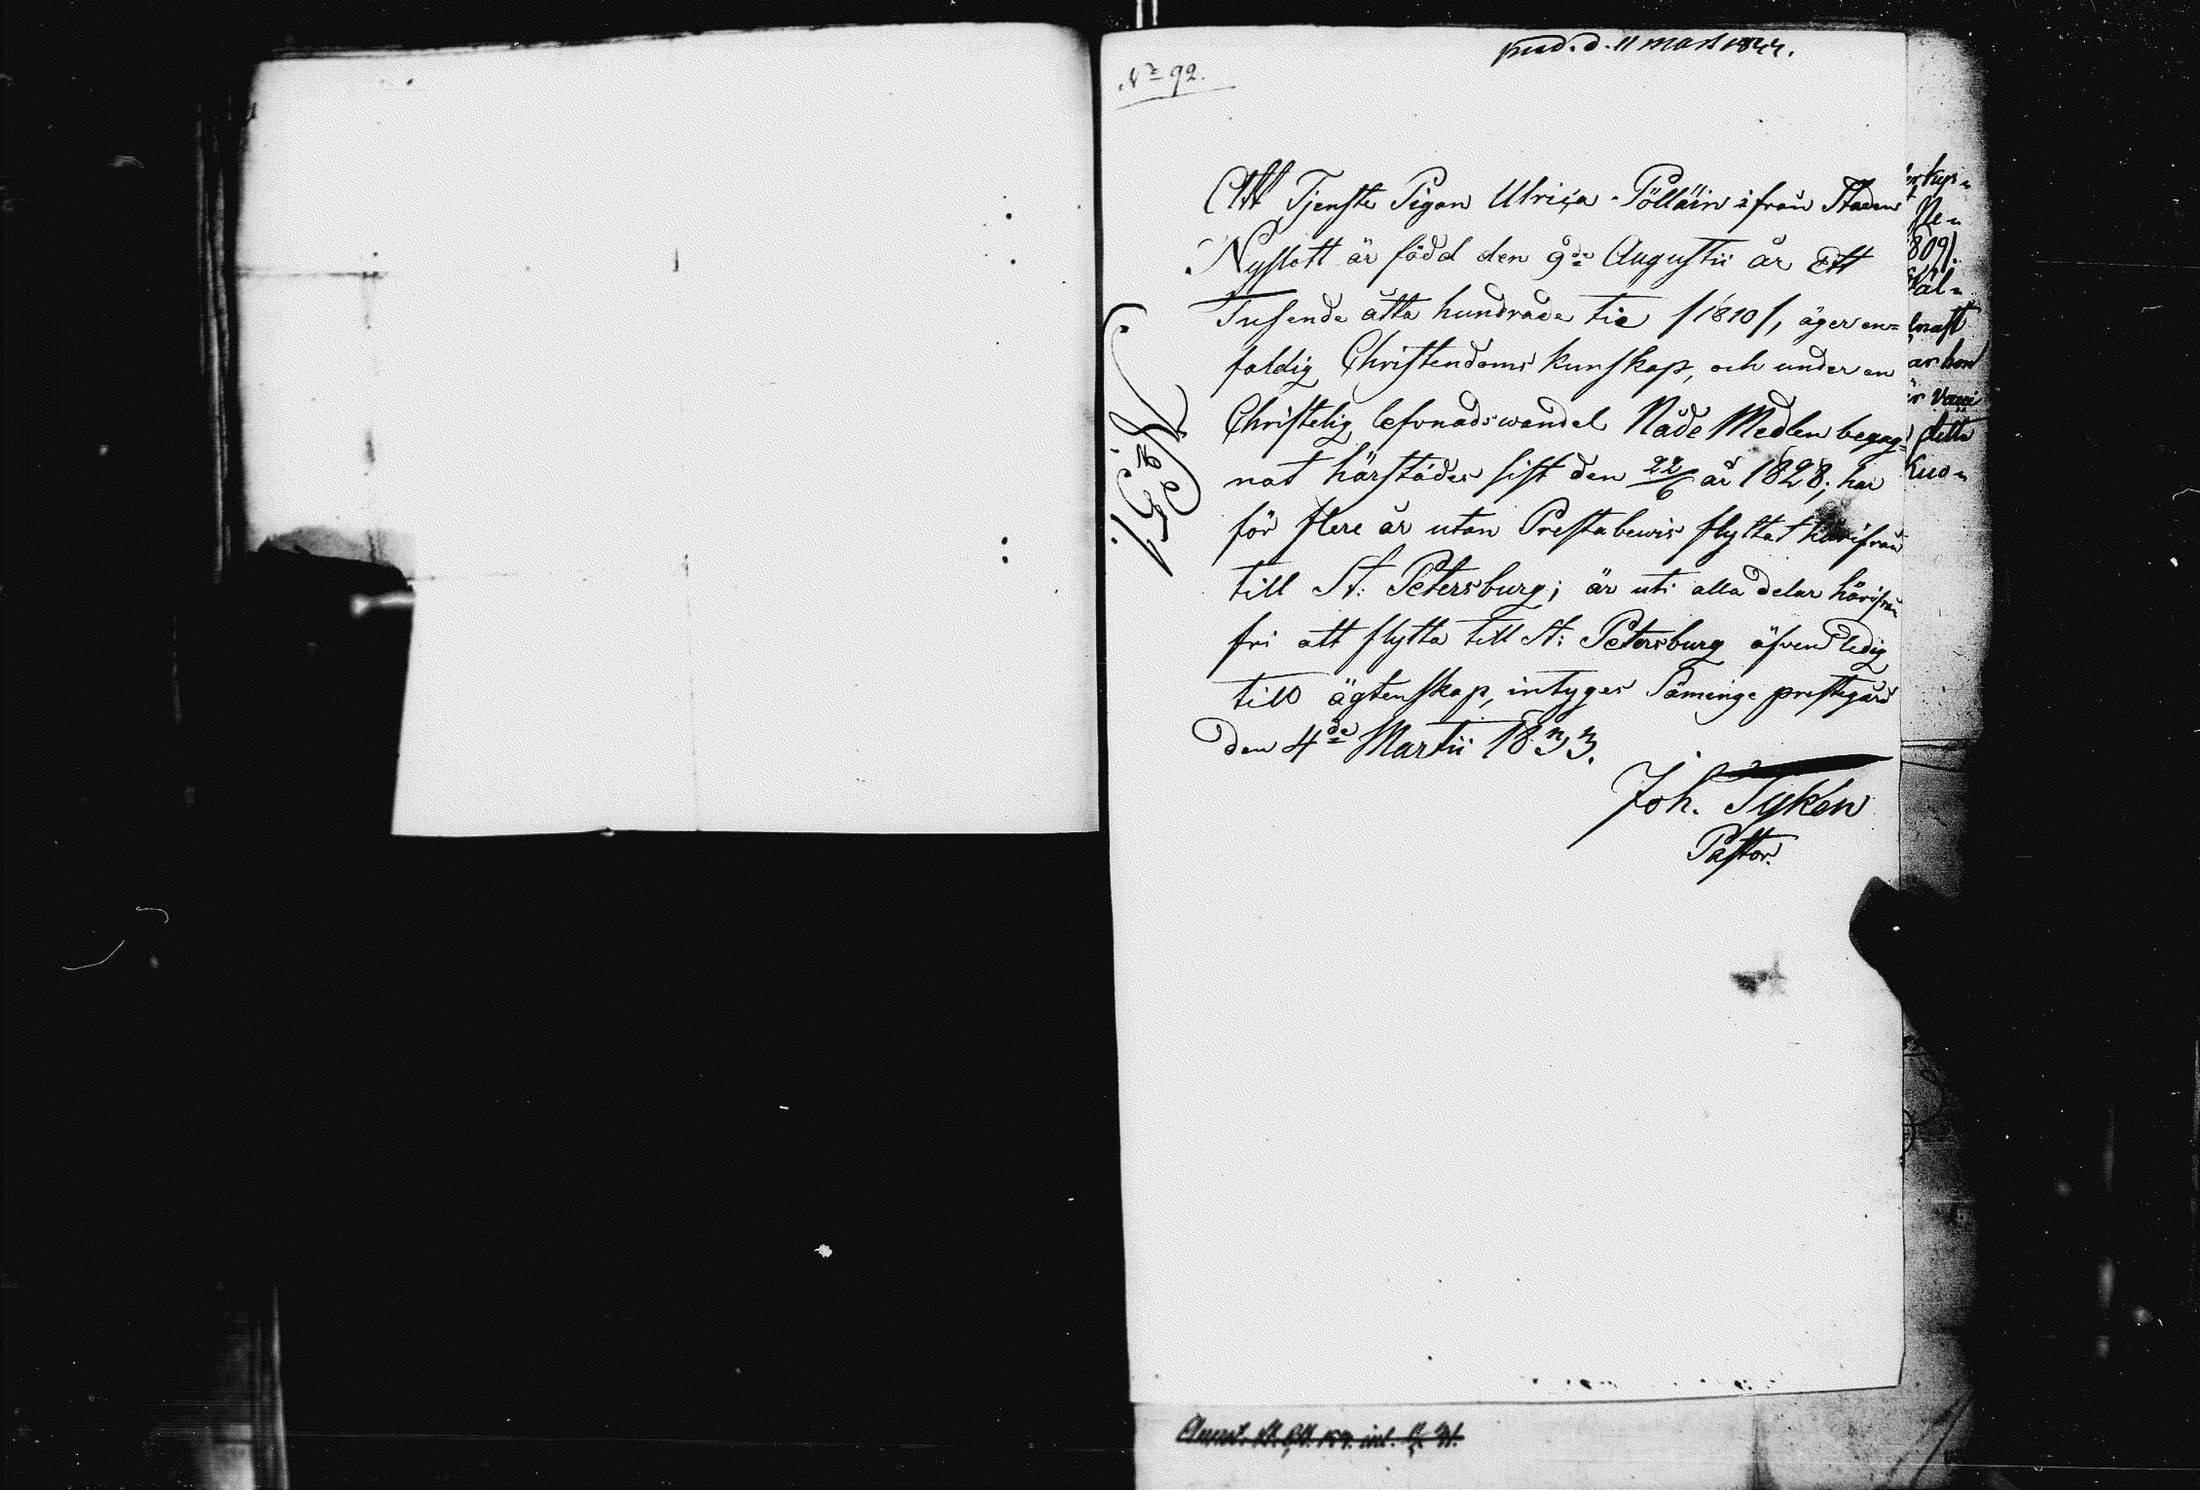 prod. d. 11 mars 1844.
Nº 92.
Att Tjenste Pigan Ulrica Pölläin ifrån Staden
Nyslott är född den 9de Augustii år Ett
Tusende åtta hundrade tie /1810/, äger en=
faldig Christendoms kunskap, och under en
Christelig lefvnadswandel Nåde Medlen begag=
nat härstädes sist den 22/6 år 1828; har
för flere år utan Prestabewis flyttat härifrån
till St: Petersburg; är uti alla delar härifrån
fri att flytta till St: Petersburg äfven ledig
till ägtenskap, intyges Säminge prestegård
den 4de Martii 1833.
Joh. Tykén
Pastor.
809/.
detta